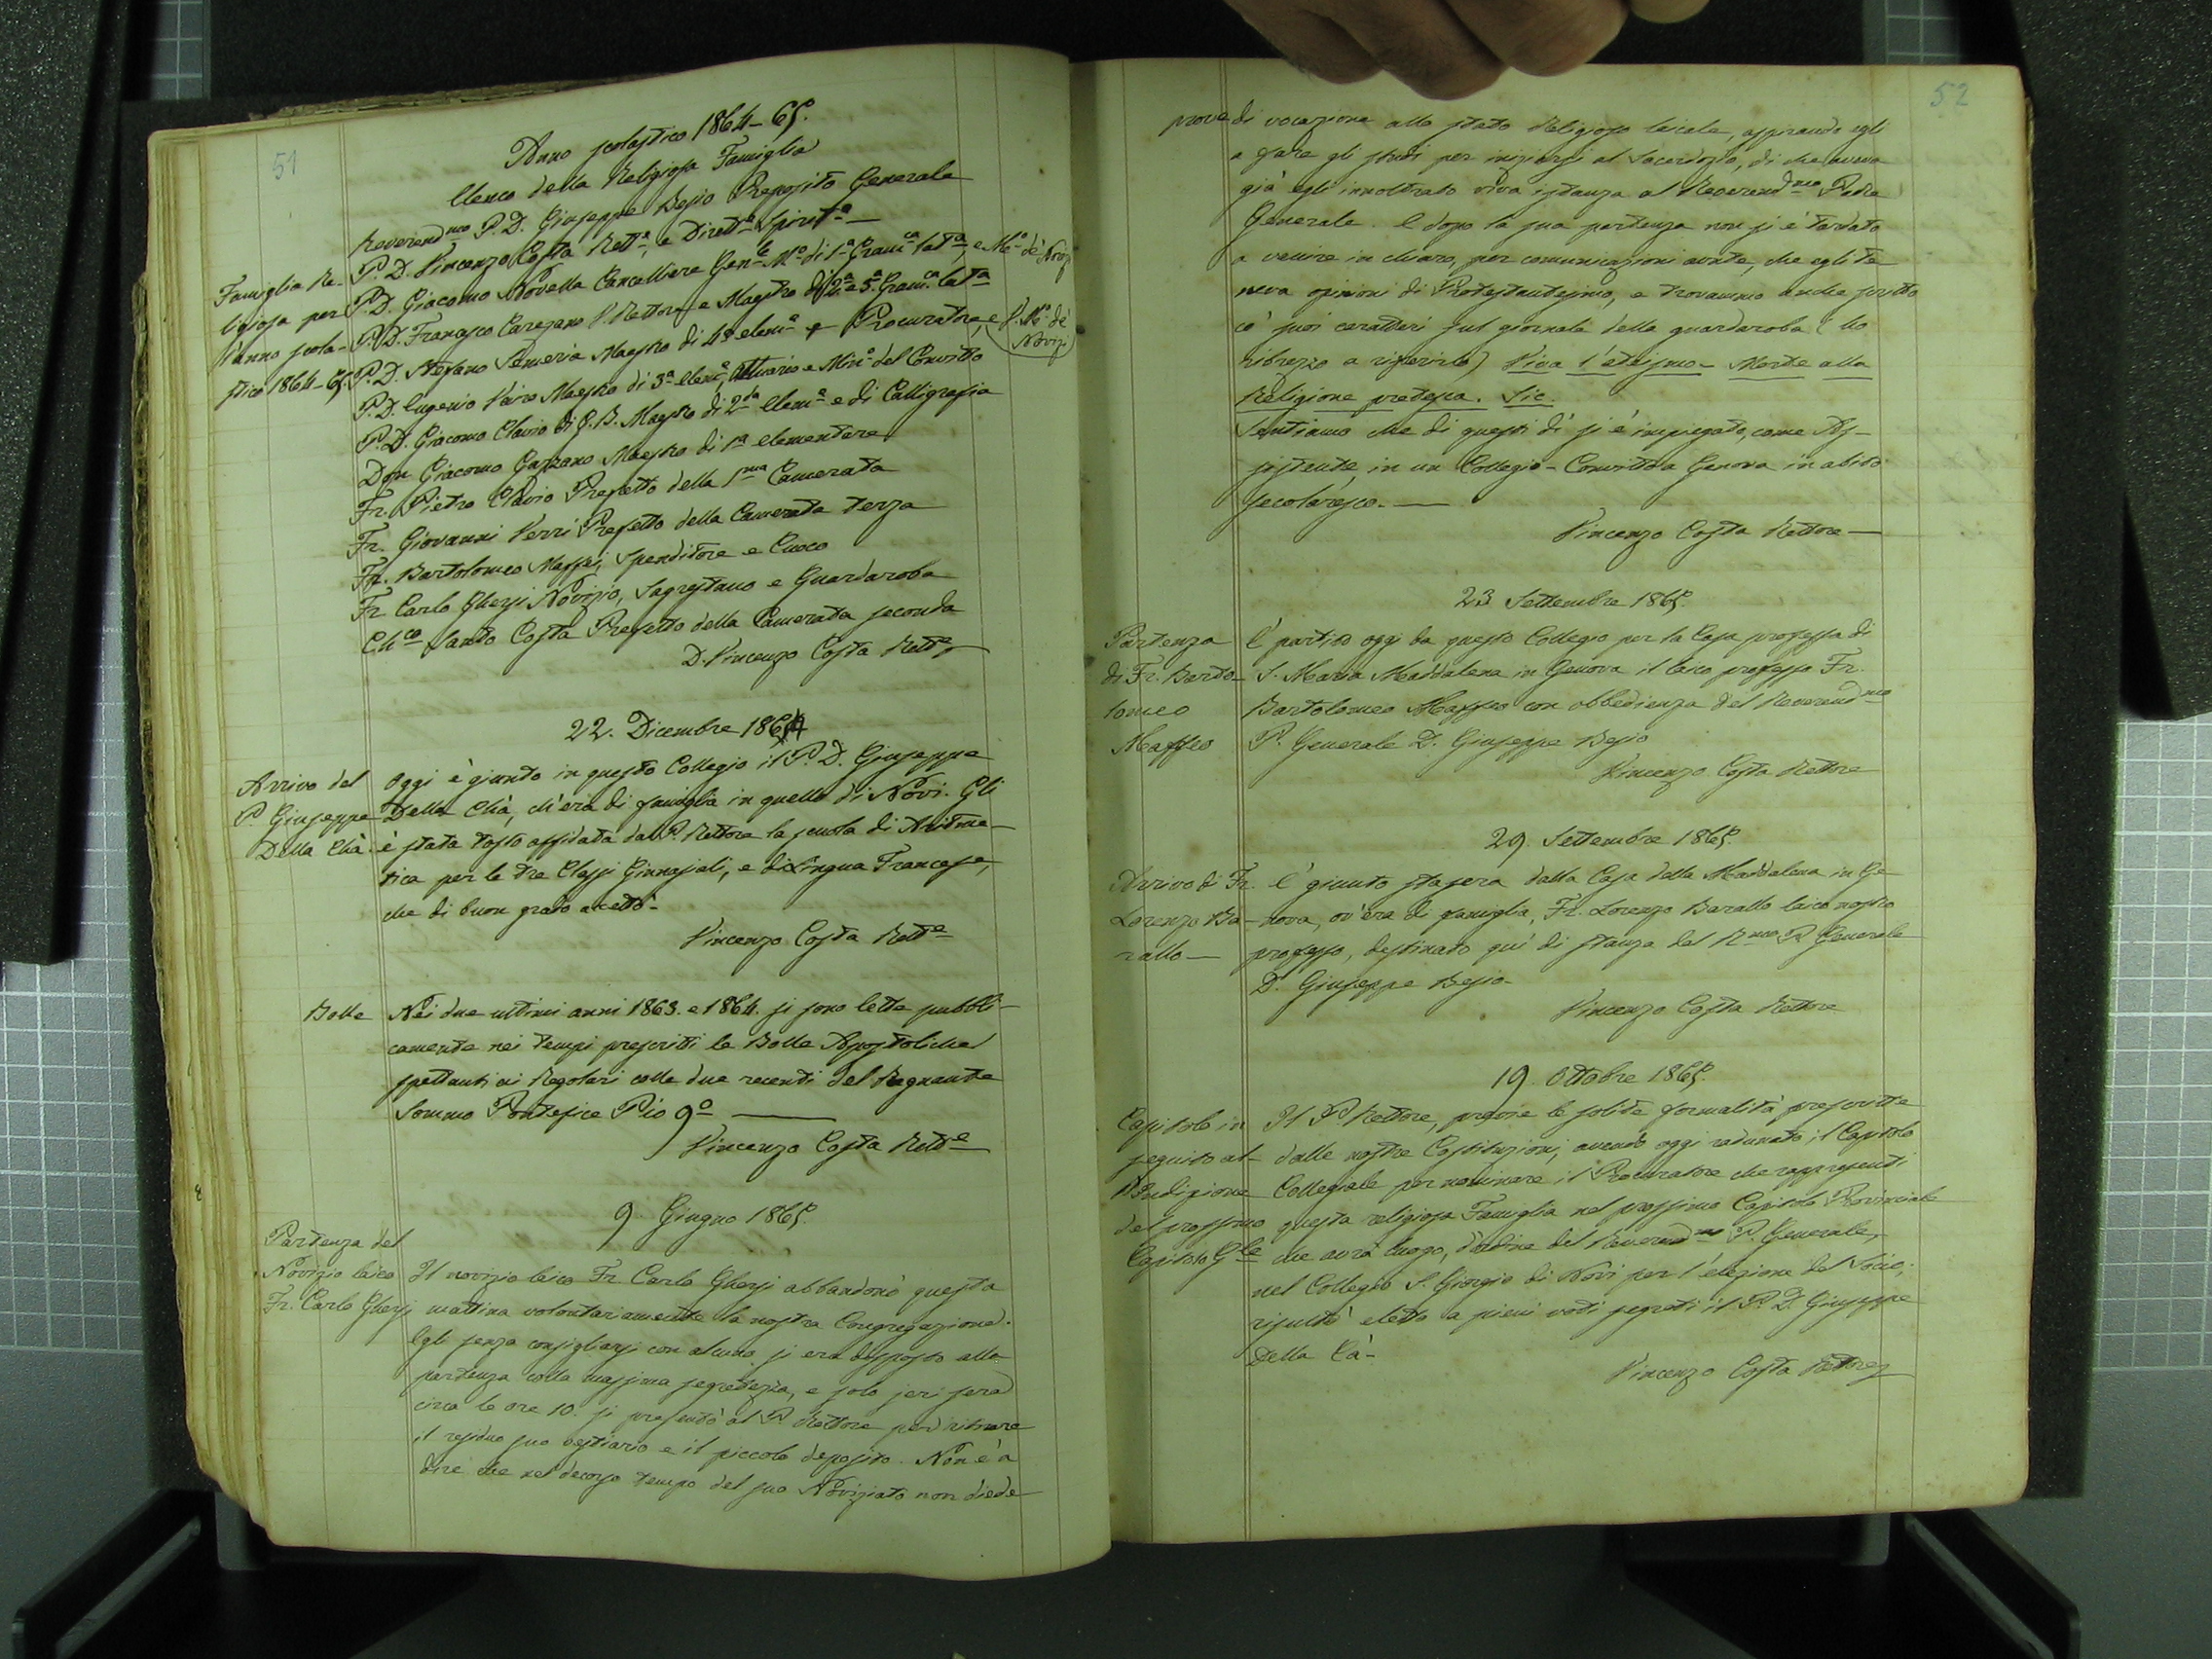 51
Anno scolastico 1864-65.
Elenco della Religiosa Famiglia
Reverend.mo P. D. Giuseppe Besio Preposito Generale
Famiglia Re-
ligiosa per
l'anno scola-
stico 1864-65.
P. D. Vincenzo Costa Rett.e, e Dirett.e Spirit.e
P. D. Giacomo Novella Cancelliere Gen.le M.o di 1.a Gram.ca lat.a, e M.o de' Noviz
P. D. Francesco Carezano V. Rettore e Maestro di 2.a e 3.a Gram.ca lat.a
P. D. Stefano Semeria Maestro di 4.a elem.e e Procuratore, e V. M.o de' Novizi
P. D. Eugenio Vairo Maestro di 3.a elem.e, Attuario e Min.o del Convitto
P. D. Giacomo Clavio di G. B. Maestro di 2.da elem.e e di Calligrafia
Don Giacomo Gazzano Maestro di 1.a elementare
Fr. Pietro Clavio Prefetto della 1.ma Camerata
Fr. Giovanni Verri Prefetto della Camerata terza
Fr. Bartolomeo Maffei, Spenditore e Cuoco
Fr. Carlo Ghersi Novizio, Sagrestano e Guardaroba
Ch.co Santo Costa Prefetto della Camerata seconda
D. Vincenzo Costa Rett.e
22. Dicembre 1864
Arrivo del
P. Giuseppe
Della Chà.
Oggi è giunto in questo Collegio il P. D. Giuseppe
Della Chà, ch'era di famiglia in quello di Novi. Gli
è stata tosto affidata dal P. Rettore la scuola di Aritme-
tica per le tre Classi Ginnasiali, e di Lingua Francese,
che di buon grado accettò.
Vincenzo Costa Rett.e
Bolle
Nei due ultimi anni 1863. e 1864. si sono lette pubbli-
camente nei tempi prescritti le Bolle Apostoliche
spettanti ai Regolari colle due recenti del Regnante
Sommo Pontefice Pio 9.o
Vincenzo Costa Rett.e
9. Giugno 1865.
Partenza del
Novizio laico
Fr. Carlo Ghersi
Il novizio laico Fr. Carlo Ghersi abbandonò questa
mattina volontariamente la nostra Congregazione.
Egli senza consigliarsi con alcuno si era disposto alla
partenza colla massima segretezza, e solo jeri sera
circa le ore 10. si presentò al P. Rettore per ritirare
il residuo suo vestiario e il piccolo deposito. Non è a
dire che nel decorso tempo del suo Noviziato non diede
52
prove di vocazione allo stato Religioso laicale, aspirando egli
a fare gli studi per iniziarsi al Sacerdozio, di che aveva
già egli innoltrato viva istanza al Reverend.mo Padre
Generale. E dopo la sua partenza non si è tardato
a venire in chiaro, per comunicazioni avute, che egli te
neva opinioni di Protestantesimo, e trovammo anche scritto
co' suoi caratteri sul giornale della guardaroba (ho
ribrezzo a riferirlo) Viva l'ateismo - Morte alla
Religione pretesca. Sic.
Sentiamo che di questi dì si è impiegato, come As-
sistente in un Collegio-Convitto a Genova in abito
secolaresco.
Vincenzo Costa Rettore
23 Settembre 1865.
Partenza
di Fr. Barto-
lomeo
Maffeo
È partito oggi da questo Collegio per la Casa professa di
S. Maria Maddalena in Genova il laico professo Fr.
Bartolomeo Maffeo con obbedienza del Reverend.mo
P. Generale D. Giuseppe Besio
Vincenzo Costa Rettore
29. Settembre 1865.
Arrivo di Fr.
Lorenzo Ba-
rallo
È giunto stasera dalla Casa della Maddalena in Ge
nova, ov'era di famiglia, Fr. Lorenzo Barallo laico nostro
professo, destinato qui di stanza dal R.mo P. Generale
D. Giuseppe Besio.
Vincenzo Costa Rettore
19. Ottobre 1865.
Capitolo in
seguito al-
l'Indizione
del prossimo
Capitolo G.le
Il P. Rettore, previe le solite formalità prescritte
dalle nostre Costituzioni, avendo oggi radunato il Capitolo
Collegiale per nominare il Procuratore che rappresenti
questa religiosa Famiglia nel prossimo Capitolo Provinciale
che avrà luogo, d'ordine del Reverend.mo P. Generale,
nel Collegio S. Giorgio di Novi per l'elezione del Socio;
risultò eletto a pieni voti segreti il P. D. Giuseppe
Della Cà.
Vincenzo Costa Rettore